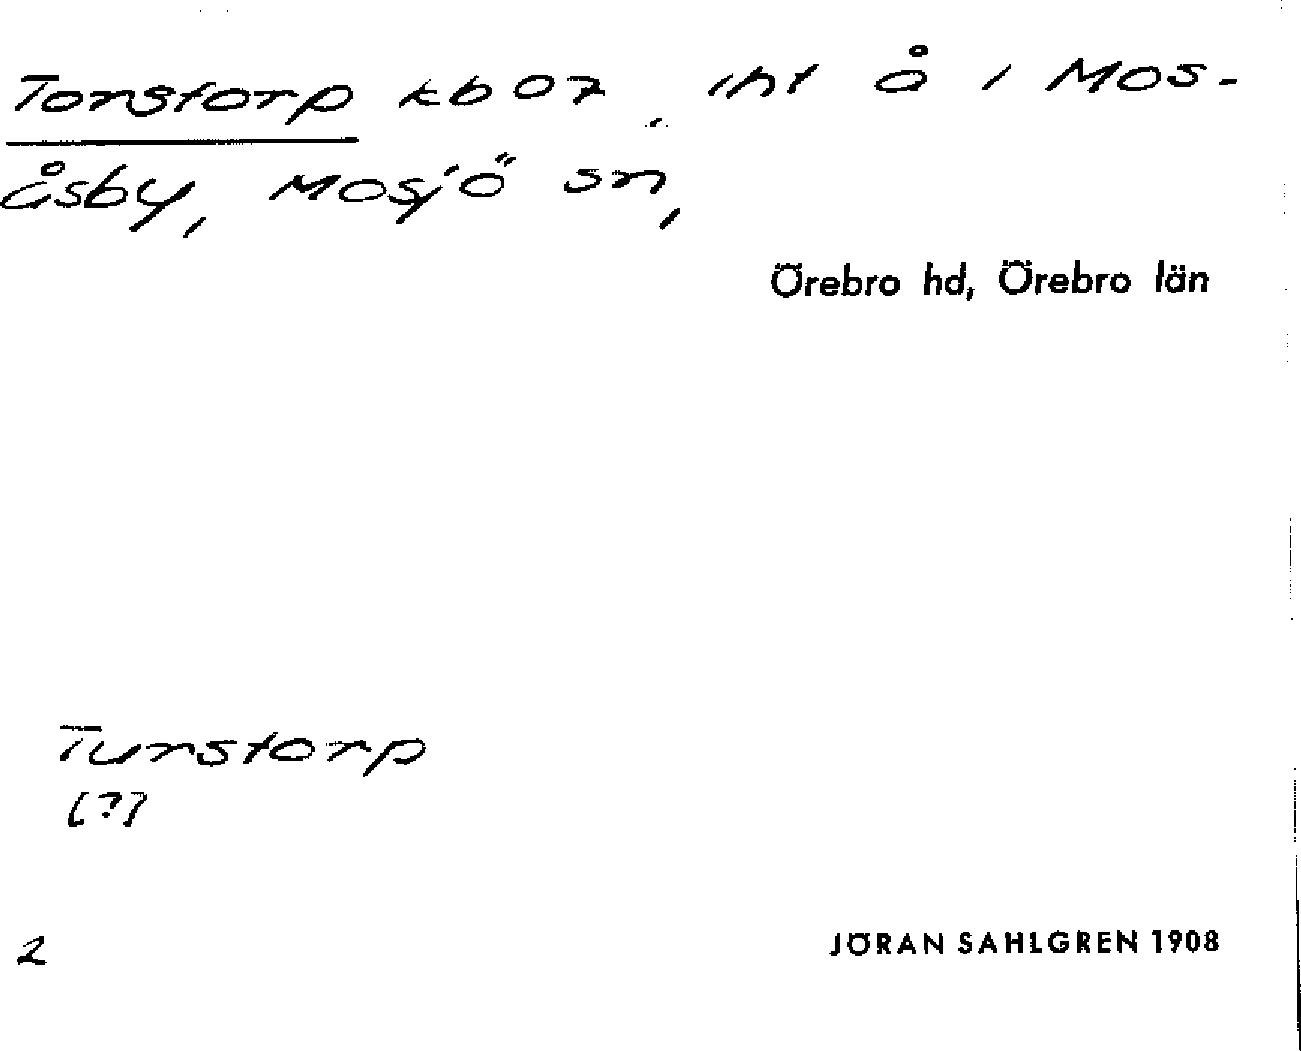 Torstorp kb 07, iht å i Mos-
åsby, Mosjö sn,
Örebro hd, Örebro län
Turstorp
[?]
2
JÖRAN SAHLGREN 1908